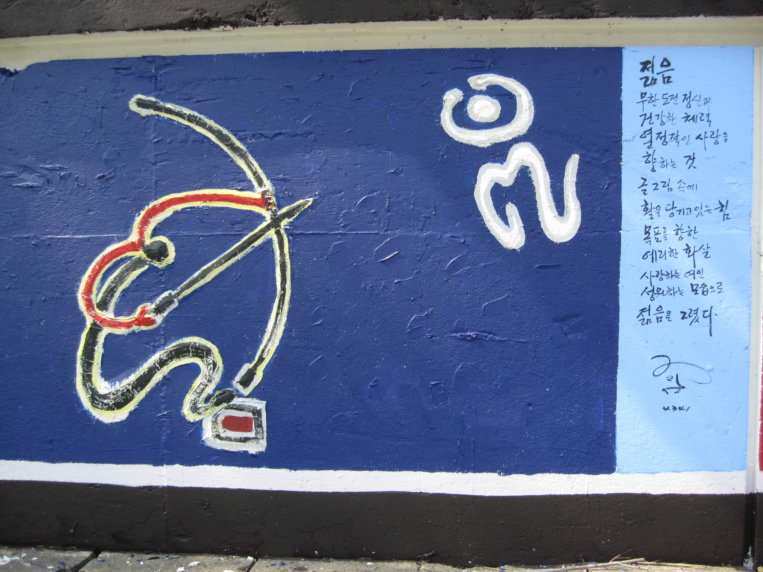 젊음
무한 도전 정신과
건강한 체력
열정적인 사랑을
향하는 것
글그림 속에
활을 당기고 있는 힘
목표를 향한
예리한 화살
사랑하는 여인
성외하는 모습으로
젊음을 그렸다.
4341